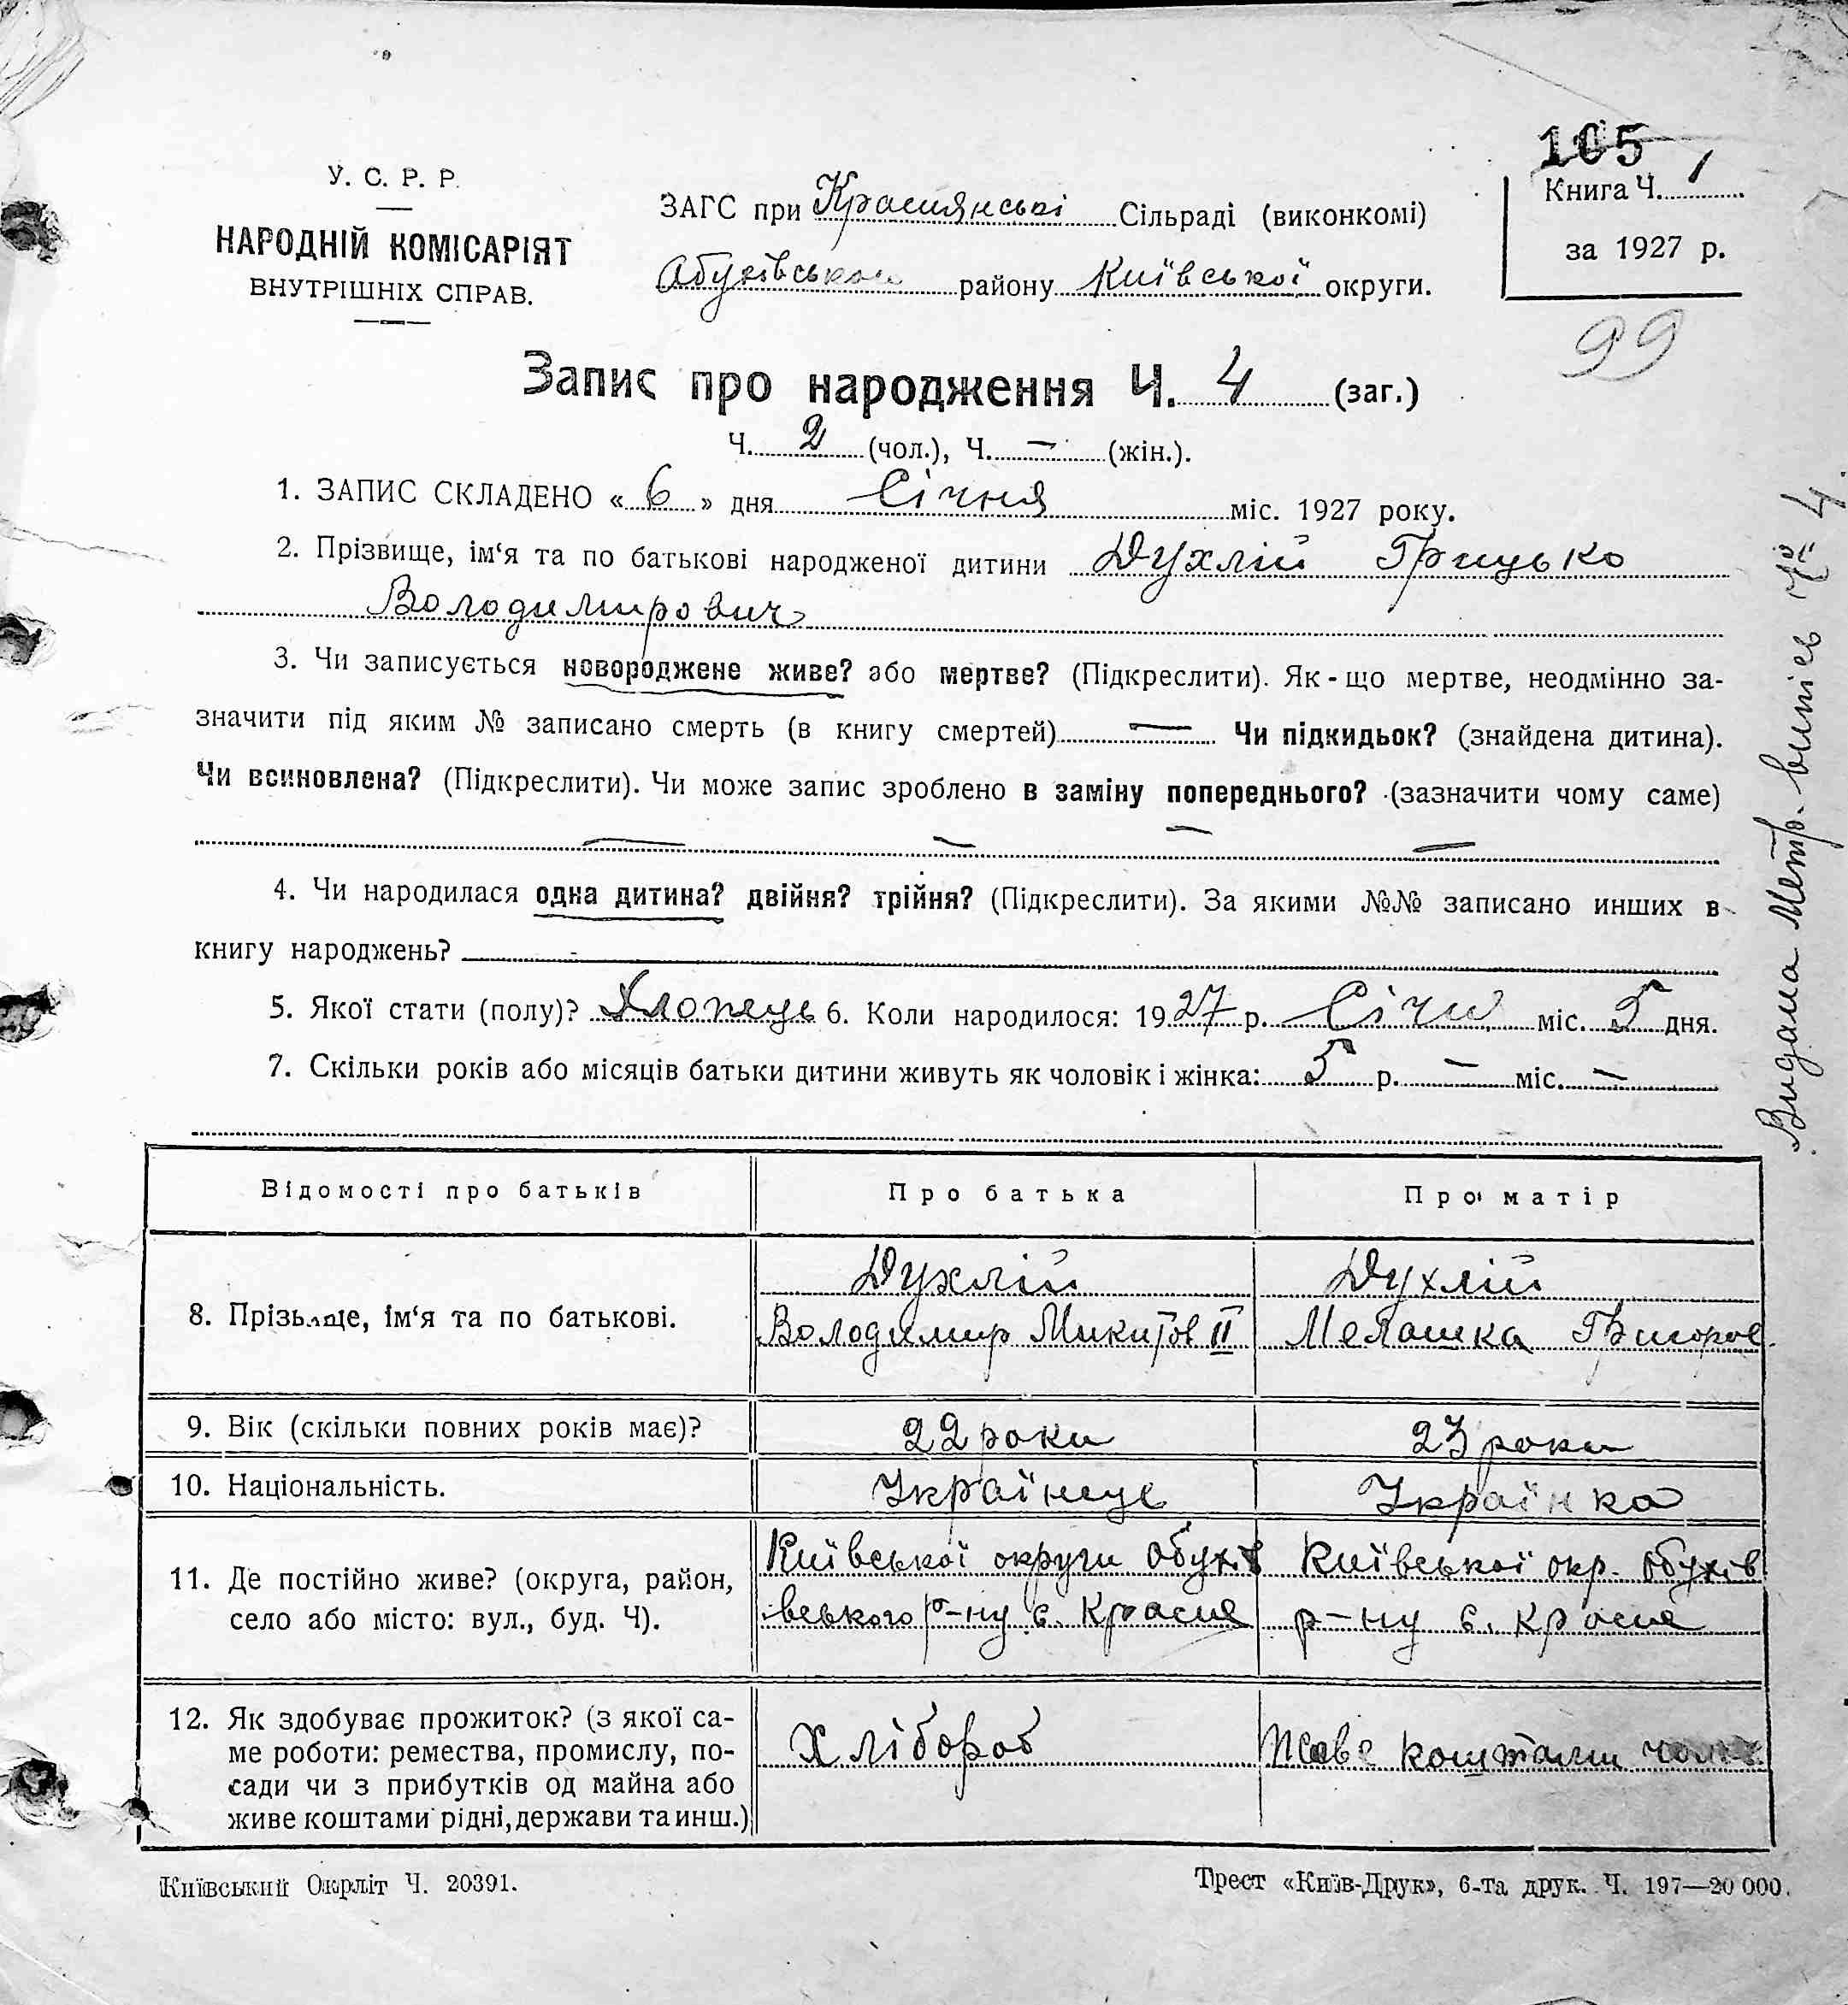 105
У. С. Р. Р.
НАРОДНІЙ КОМІСАРІЯТ
ВНУТРІШНІХ СПРАВ.
ЗАГС при Краснянські Сільраді (виконкомі)
Обухівського району Київської округи.
Книга Ч. 1
за 1927 р.
99
Запис про народження Ч. 4 (заг.)
Ч. 2 (чол.), Ч. — (жін.).
1. ЗАПИС СКЛАДЕНО « 6 » дня Січня міс. 1927 року.
2. Прізвище, ім‘я та по батькові народженої дитини Духлій Грицько
Володимирович
3. Чи записується новороджене живе? або мертве? (Підкреслити). Як-що мертве, неодмінно за-
значити під яким № записано смерть (в книгу смертей) — Чи підкидьок? (знайдена дитина).
Чи всиновлена? (Підкреслити). Чи може запис зроблено в заміну попереднього? (зазначити чому саме)
— — — —
4. Чи народилася одна дитина? двійня? трійня? (Підкреслити). За якими №№ записано инших в
книгу народжень?
5. Якої стати (полу)? Хлопець 6. Коли народилося: 1927 р. Січня міс. 5 дня.
7. Скільки років або місяців батьки дитини живуть як чоловік і жінка: 5 р. — міс. —
Видала Метр. витяг № 4
Відомості про батьків Про батька Про матір
8. Прізвище, ім‘я та по батькові.
Духлій
Володимир Микитов II
Духлій
Мелашка Григоров.
9. Вік (скільки повних років має)? 22 роки 23 роки
10. Національність. Українець Українка
11. Де постійно живе? (округа, район,
село або місто: вул., буд. Ч).
Київської округи Обухів
вського р-ну с. Красне
Київської окр. Обухів
р-ну с. Красне
12. Як здобуває прожиток? (з якої са-
ме роботи: ремества, промислу, по-
сади чи з прибутків од майна або
живе коштами рідні, держави та инш.)
Хлібороб
Живе коштами
Київський Окрліт Ч. 20391.
Трест «Київ-Друк», 6-та друк. Ч. 197—20 000.